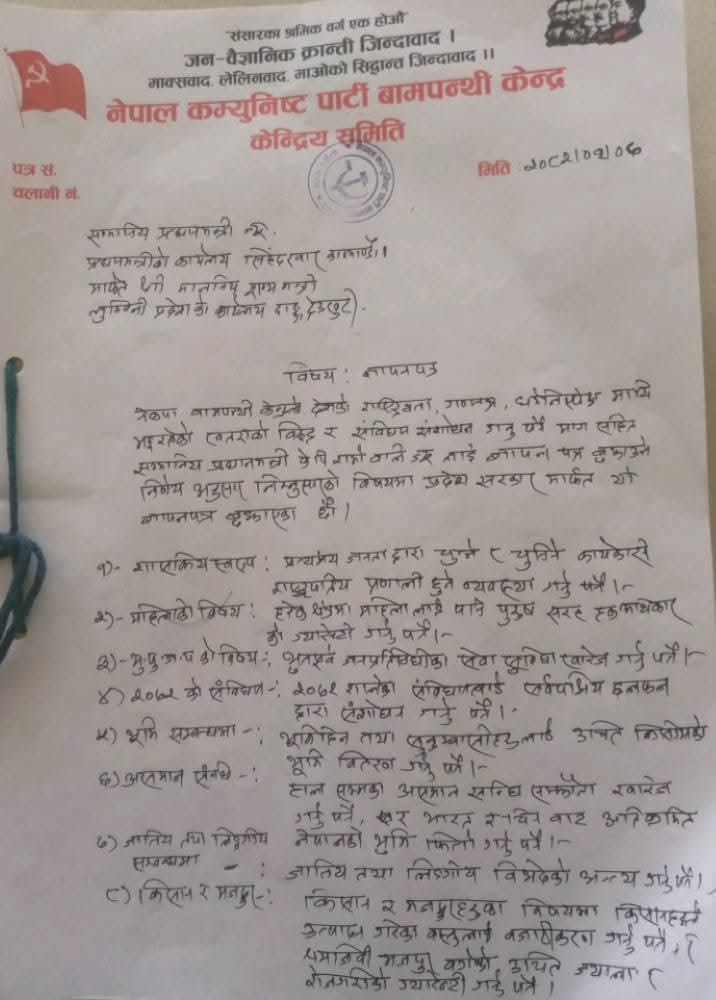 संसारका श्रमिक वर्ग एक होऔ
जन-वैज्ञानिक क्रान्ती जिन्दावाद ।
मार्क्सवाद, लेलिनवाद, माओको सिद्वान्त जिन्दावाद ।।
नेपाल कम्युनिष्ट पार्टी बामपन्थी केन्द्र
केन्द्रिय समिति
पत्र सं.
चलानी नं.
मिति २०८२।०२।०६
सम्मानिय प्रधानमन्त्री ज्यू.
प्रधानमन्त्रीको कार्यलय सिंहदरवार काठमाण्डौ।
मार्फत श्री माननिय मुख्य मन्त्री
लुम्विनी प्रदेशको कार्यलय दाङ्ग, देउखुरी).
विषय : ज्ञापनपत्र
नेकपा बामपन्थी केन्द्रले देशको राष्ट्रियता, गणतन्त्र, धर्मनिरपेक्ष माथि
भइरहेको खतराको विरुद्ध र संविधान संशोधन गर्नु पर्ने माग सहित
सम्मानिय प्रधानमन्त्री के.पि शर्मा वली ज्यू लाई ज्ञापन पत्र बुझाउने
निर्णय अनुसार निम्नुसारको विषयमा प्रदेश सरकार मार्फत यो
ज्ञापनपत्र बुझाएका छौं ।
१)- शासकियस्वरुप : प्रत्यक्ष जनता द्वारा चुन्ने र चुनिने कार्यकारी
राष्ट्रपतिय प्रणाली हुने व्यवस्था गर्नु पर्ने ।-
२)- महिलाको विषय : हरेक क्षेत्रमा महिला लाई पनि पुरुष सरह हकअधिकार
को ग्यारेन्टी गर्नु पर्ने ।-
३)- भु.पु ज.प को विषय-: भुतपूर्व जनप्रतिनिधीको सेवा सुविधा खारेज गर्नु पर्ने ।-
४) २०७२ को संविधान-: २०७२ सालको संविधानलाई सर्वपक्षिय छलफल
द्वारा संशोधन गर्नु पर्ने ।-
५) भूमि सम्बन्धमा -: भूमिहिन तथा सुकुम्वासीहरुलाई उचित किसिमको
भूमि वितरण गर्नु पर्ने ।-
६) असमान संन्धि -: हाल सम्मका असमान सन्धि सम्झौता खारेज
गर्नु पर्ने, भारत र चिन वाट अतिक्रमित
नेपालको भुमि फिर्ता गर्नु पर्ने ।-
७) जातिय तथा लिङ्गीय
सम्बन्धमा -: जातिय तथा लिङ्गीय विभेदको अन्त्य गर्नु पर्ने ।
८) किसान र मजदुर-: किसान र मजदुरहरुका विषयमा किसानहरुले
उत्पादन गरेका वस्तुलाई वजारीकरण गर्नु पर्ने, र
श्रमजिवी मजदुर वर्गको उचित ज्याला र
रोजगारीको ग्यारेन्टी गर्नु पर्ने ।